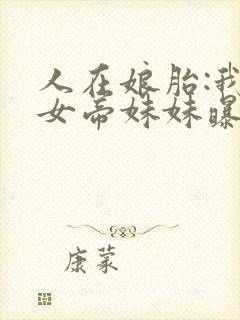 人在娘胎:我
女帝妹妹曝
康蒙